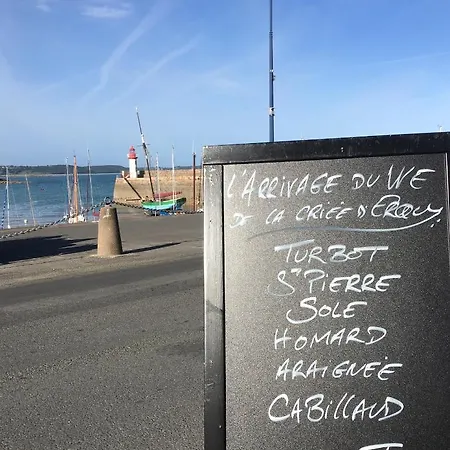 L'ARRIVAGE DU WE
DE LA CRIÉE D'ERQUY
TURBOT
ST PIERRE
SOLE
HOMARD
ARAIGNÉE
CABILLAUD